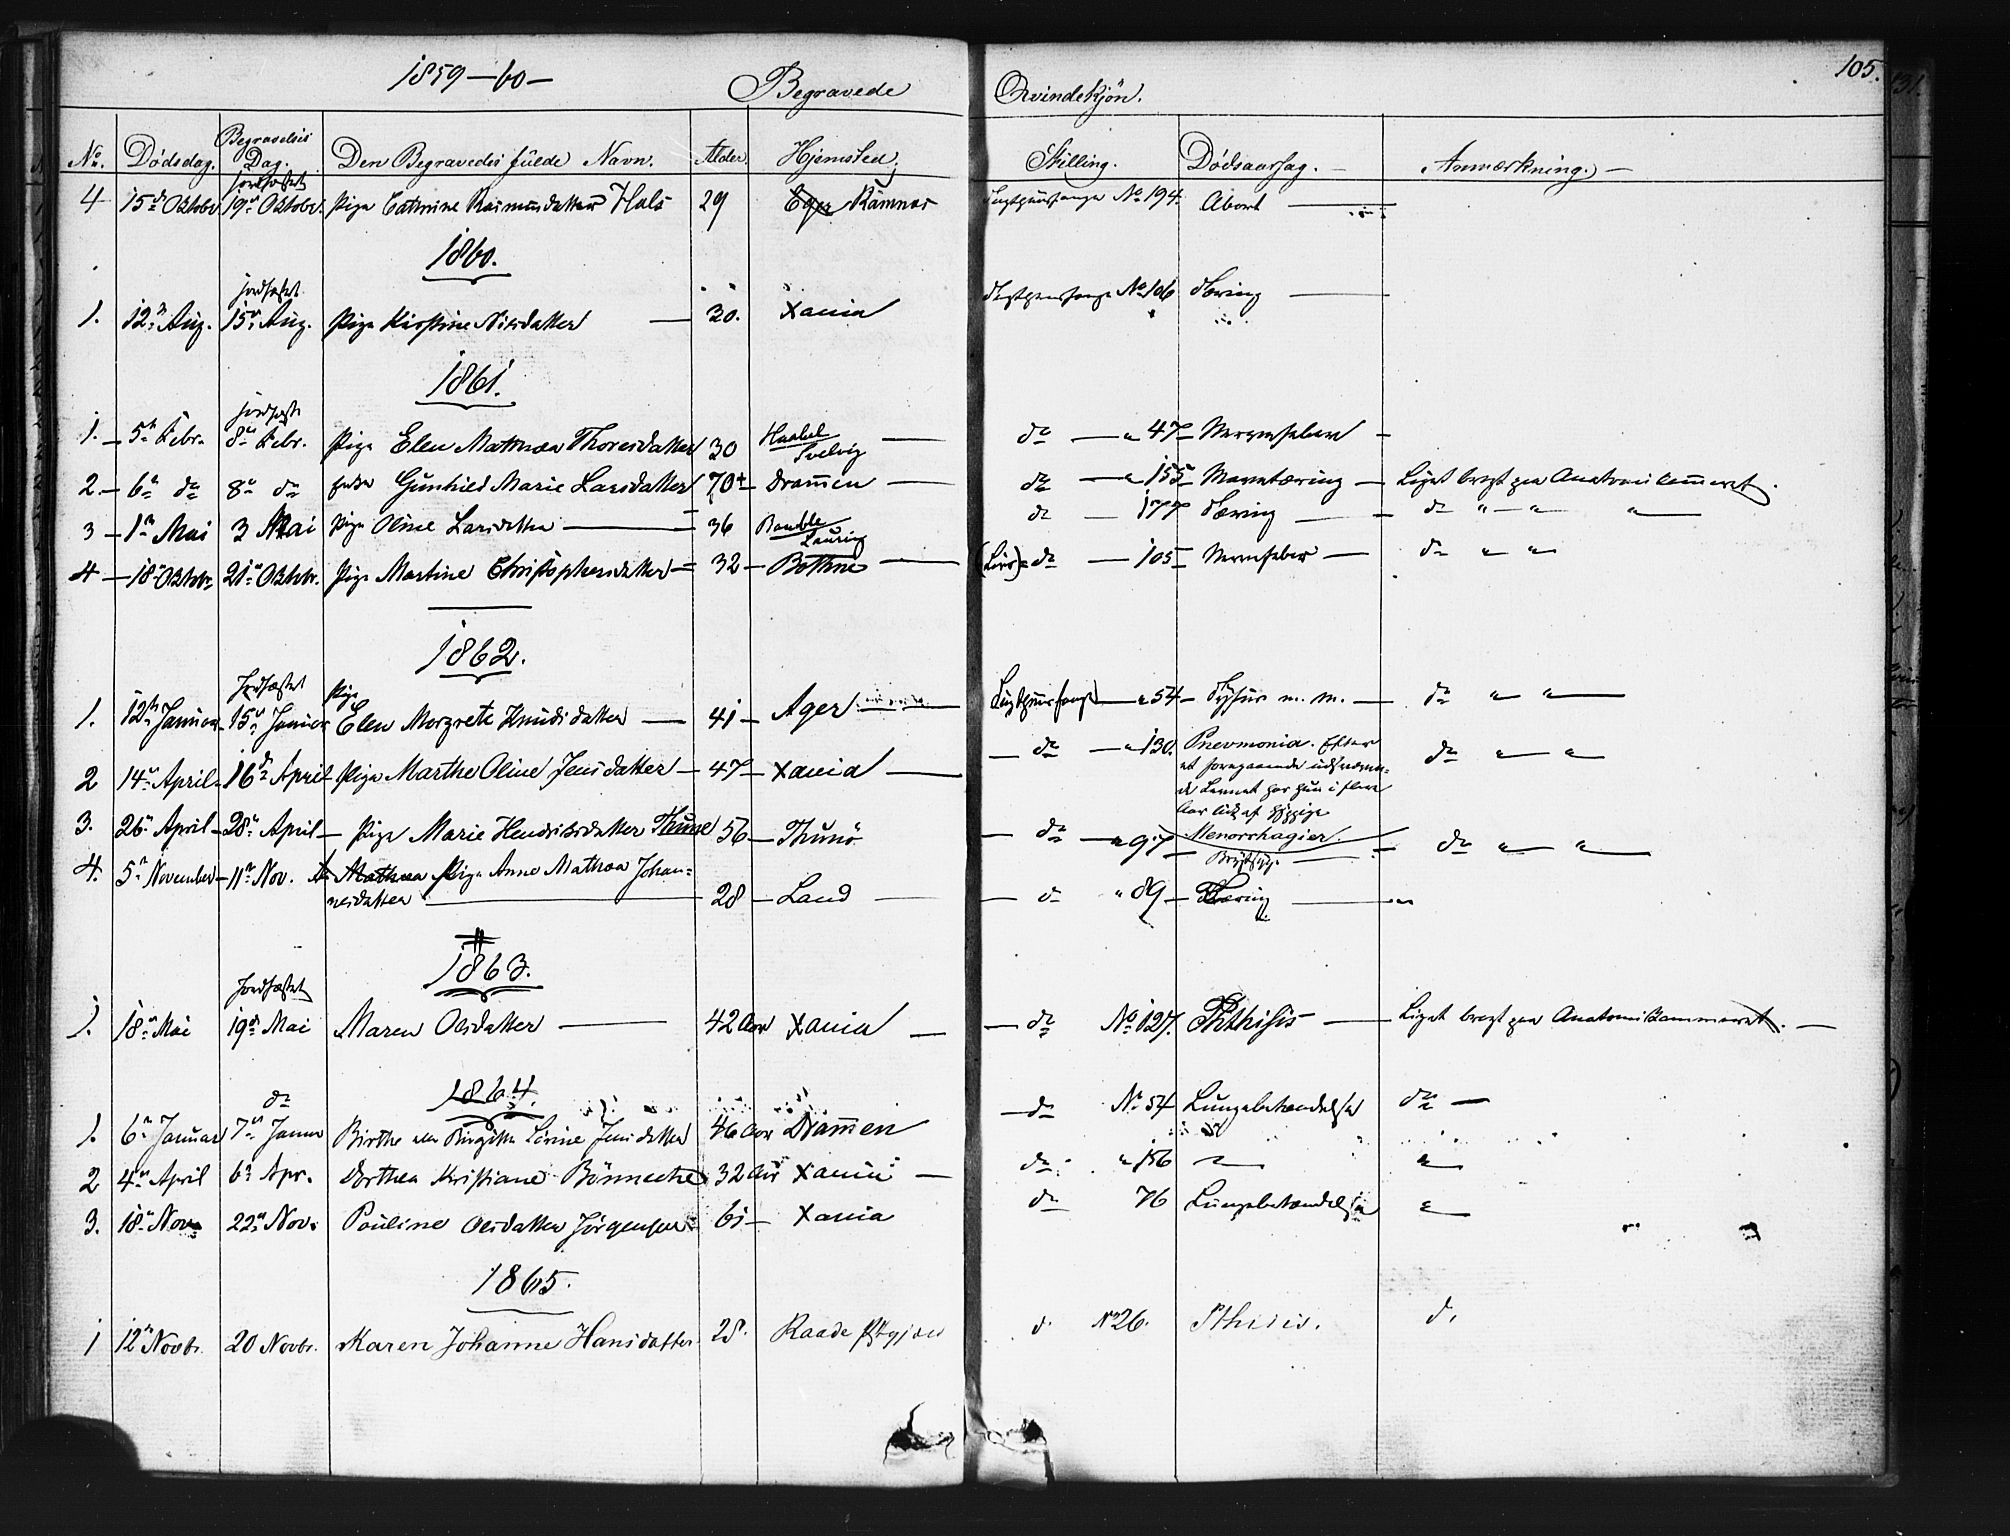 1859-60-
Begravede
Qvindekjön.
105.
131.
No. Dödsdag. Begravelses Dag. Den Begravedes fulde Navn. Alder. Hjemsted. Stilling. Dödsaarsag. Anmærkning.
jordfæstet
4 15de Oktobr 19de Oktobr. Pige Cathrine Rasmusdatter Hals 29 Eger Ramnæs Tugthusfange No 194. Abort
1860.
jordfæstet
1. 12te Aug. 15de Aug. Pige Kirstine Nilsdatter 30. Xania Tugthusfange No 106 Tæring
1861.
jordfæst
1. 5te Febr. 8de Febr. Pige Elen Mathea Thoresdatter 30 Svelvig do " 47 Nervefeber
2. 6te do 8de do Enke Gunhild Marie Larsdatter 70 Drammen do " 155 Marvtæring Liget bragt paa Anatomikammeret.
3 1ste Mai 3 Mai Pige Oline Larsdatter 36 Bamble do 177 Tæring do " " "
4 18de Oktobr 21de Oktobr. Pige Martine Christophersdatter 32 Bothne (Livs) do 105 Nervefeber do " "
1862.
Jordfæstet Pige
1. 12te Januar 15de Januar Elen Margrete Knudsdatter 41 Ager Tugthusfange " 54 Tyfus m. m. do " "
2 14de April 16de April Pige Marthe Oline Jensdatter 47 Xania do " 130. Pnevmonia. Efter
et foregaaende
har hun i flere
Aar lidt af hyppige
Menorrhagier. do " "
3. 26de April 28de April Pige Marie Hendriksdatter Thune 56 Thunö do " 97 Brystsyge do " "
4. 5te November 11te Nov. Mathea Pige Anne Mathea Johan=
nesdatter 28 Land do " 89 Tæring "
1863.
Jordfæstet
1. 18de Mai 19de Mai Maren Olsdatter 42 Aar Xania do No 127. Phthisis Liget bragt paa Anatomikammeret.
1864.
do
1. 6te Januar 7de Januar Birthe eller Birgitte Lovine Jensdatter 46 Aar Drammen do No 54 Lungebetændelse do
2 4de April 6te Apr. Dorthea Kristiane Bönnecke 32 Aar Xania do " 156 " "
3. 18de Nov. 22de Nov. Pauline Olsdatter Jörgensen 61 Xania do 76 Lungebetændelse "
1865.
1 12te Novbr. 20 Novbr. Karen Johanne Hansdatter 28. Raade Pstgjæld d. No 26. Pthisis. d.